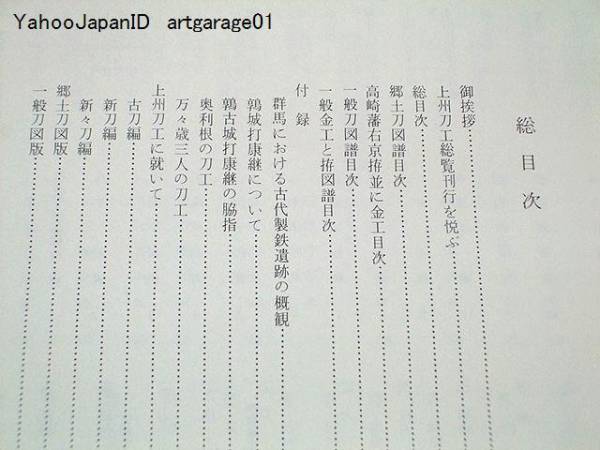 YahooJapanID artgarage01
総目次
御挨拶
上州刀工総覧刊行を悦ぶ
総目次
郷土刀図譜目次
高崎藩右京拵並に金工目次
一般刀図譜目次
一般金工と拵図譜目次
付録
群馬における古代製鉄遺跡の概観
鶉城打康継について
鶉古城打康継の脇指
奥利根の刀工
万々歳三人の刀工
上州刀工に就いて
古刀編
新刀編
新々刀編
郷土刀図版
一般刀図版